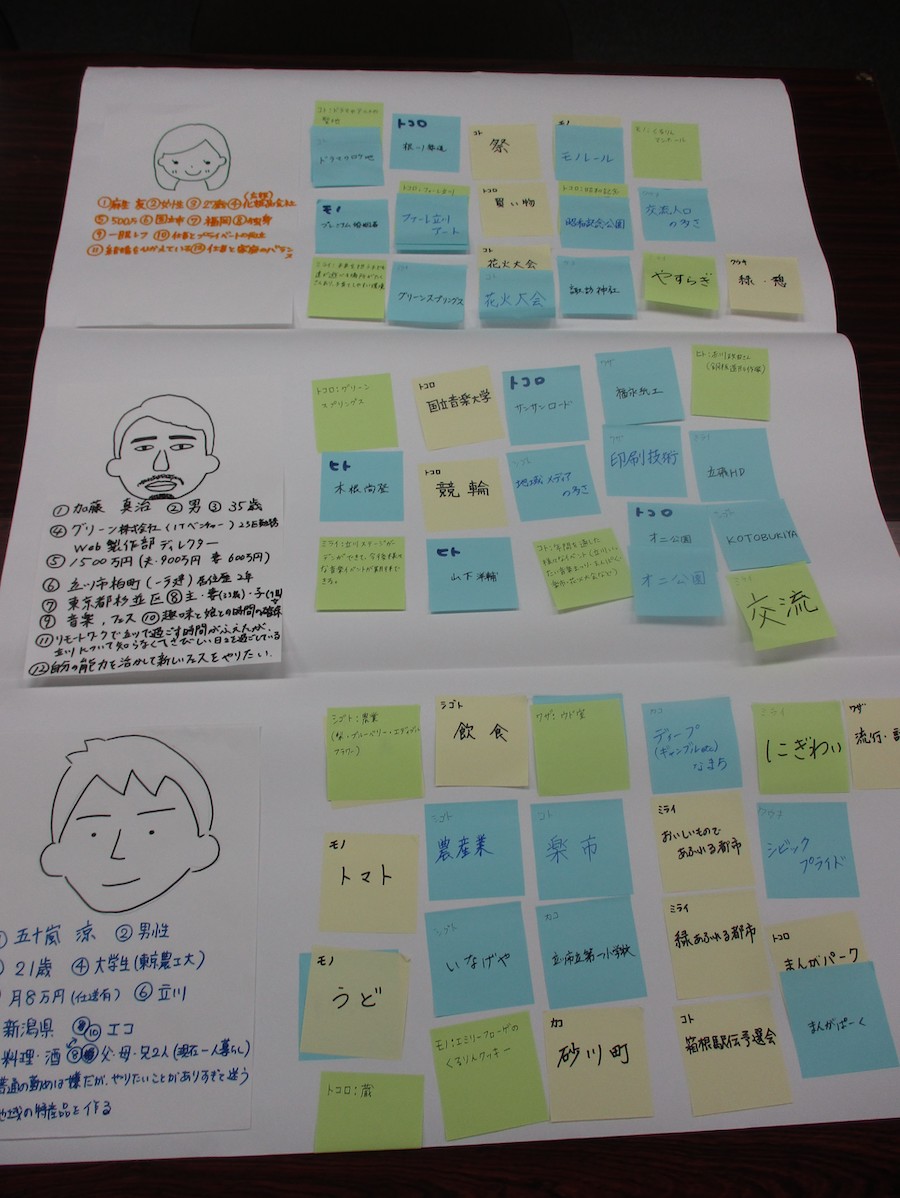 ①麻生 友②女性③27歳④化粧品会社
⑤500万⑥国立市⑦福岡⑧独身
⑨一眼レフ ⑩仕事とプライベートの両立
⑪結婚をひかえている⑫仕事と家庭のバランス
ドラマロケ地
トコロ
コト
祭
モノ
モノレール
モノ
コト
買い物
ファーレ立川
アート
トコロ:昭和記念
昭和記念公園
交流人口
の多さ
グリーンスプリングス
コト
花火大会
コト
花火大会
諏訪神社
ミライ
やすらぎ
ワクワク
緑・憩
①加藤 真治 ②男 ③35歳
④グリーン株式会社(ITベンチャー)
Web製作部ディレクター
⑤1500万円(夫・900万円 妻600万円)
⑥立川市柏町(一戸建)居住歴2年
⑦東京都杉並区⑧主・妻
⑨音楽、フェス ⑩趣味と娘との時間の確保
⑪リモートワークで立川で過ごす時間がふえたが、
立川について知らなくてさびしい日々を過ごしている
⑫自分の能力を活かして新しいフェスをやりたい。
トコロ:グリーン
スプリングス
トコロ
国立音楽大学
トコロ
サンサンロード
ワザ
福永紙工
ヒト
木根尚登
トコロ
競輪
シゴト
地域メディア
の多さ
ワザ
印刷技術
ミライ
立飛HD
ヒト
山下洋輔
トコロ
オニ公園
オニ公園
シゴト
KOTOBUKIYA
ミライ
交流
五十嵐 涼 ②男性
21歳 ④大学生(東京農工大)
月8万円(仕送有) ⑥立川
新潟県 ⑩エコ
料理・酒 父・母・兄2人(現在一人暮らし)
普通の勤めは嫌だが、やりたいことがありすぎて迷う
地域の特産品を作る
シゴト:農業
(梨・ブルーベリー・エディブル
フラワー)
シゴト
飲食
ワザ:ウド室
カコ
ディープ
(ギャンブルetc)
なまち
ミライ
にぎわい
ワザ
流行・
モノ
トマト
シゴト
農産業
コト
楽市
ミライ
おいしいもので
あふれる都市
シビック
プライド
モノ
うど
シゴト
いなげや
カコ
立川市立第一小学校
ミライ
緑あふれる都市
トコロ
まんがパーク
まんがぱーく
モノ:エミリーフローゲの
くるりんクッキー
カコ
砂川町
コト
箱根駅伝予選会
トコロ:蔵